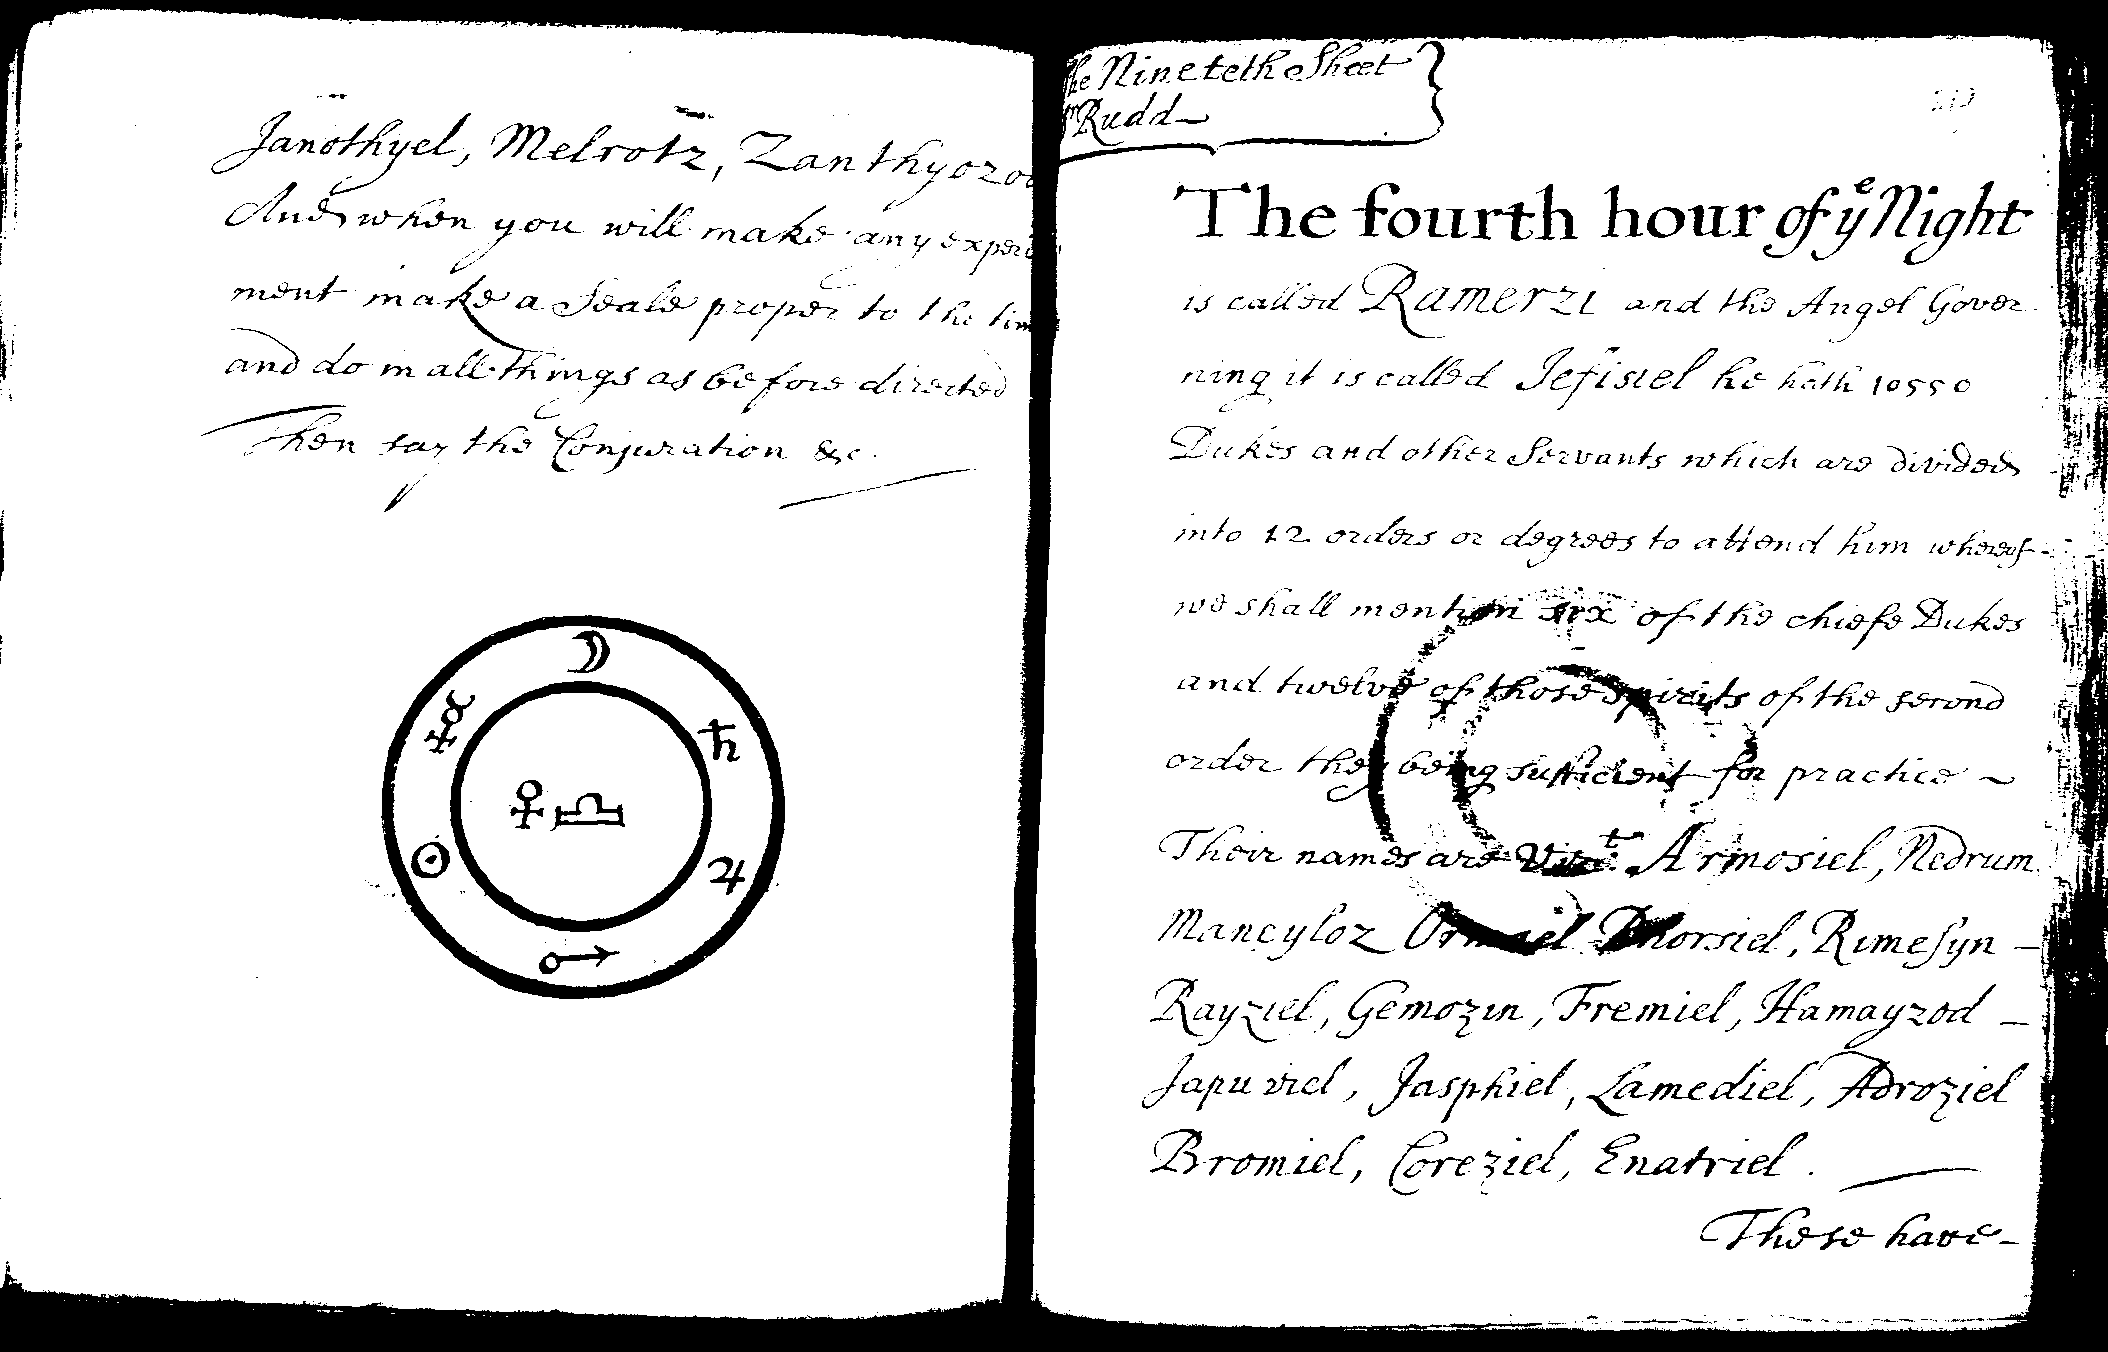 Janothyel, Melrotz, Zanthyozod
And when you will make any experi
ment make a Seale proper to the time
and do in all things as before directed
Then say the Conjuration &c.
The Nineteth Sheet
Dr Rudd
The fourth hour of yͤ Night
is called Ramerzi and the Angel Gover
ning it is called Jefisiel he hath 10550
Dukes and other Servants which are divided
into 12 orders or degrees to attend him whereof
we shall mention six of the chiefe Dukes
and twelve of those spirits of the second
order they being sufficient for practice ~
Their names are Vizt. Armosiel, Nedrum
Maneyloz Ormael Phorsiel, Rimesyn -
Rayziel, Gemozin, Fremiel, Hamayzod -
Japuviel, Jasphiel, Lamediel, Adroziel
Bromiel, Coreziel, Enatriel.
These have-